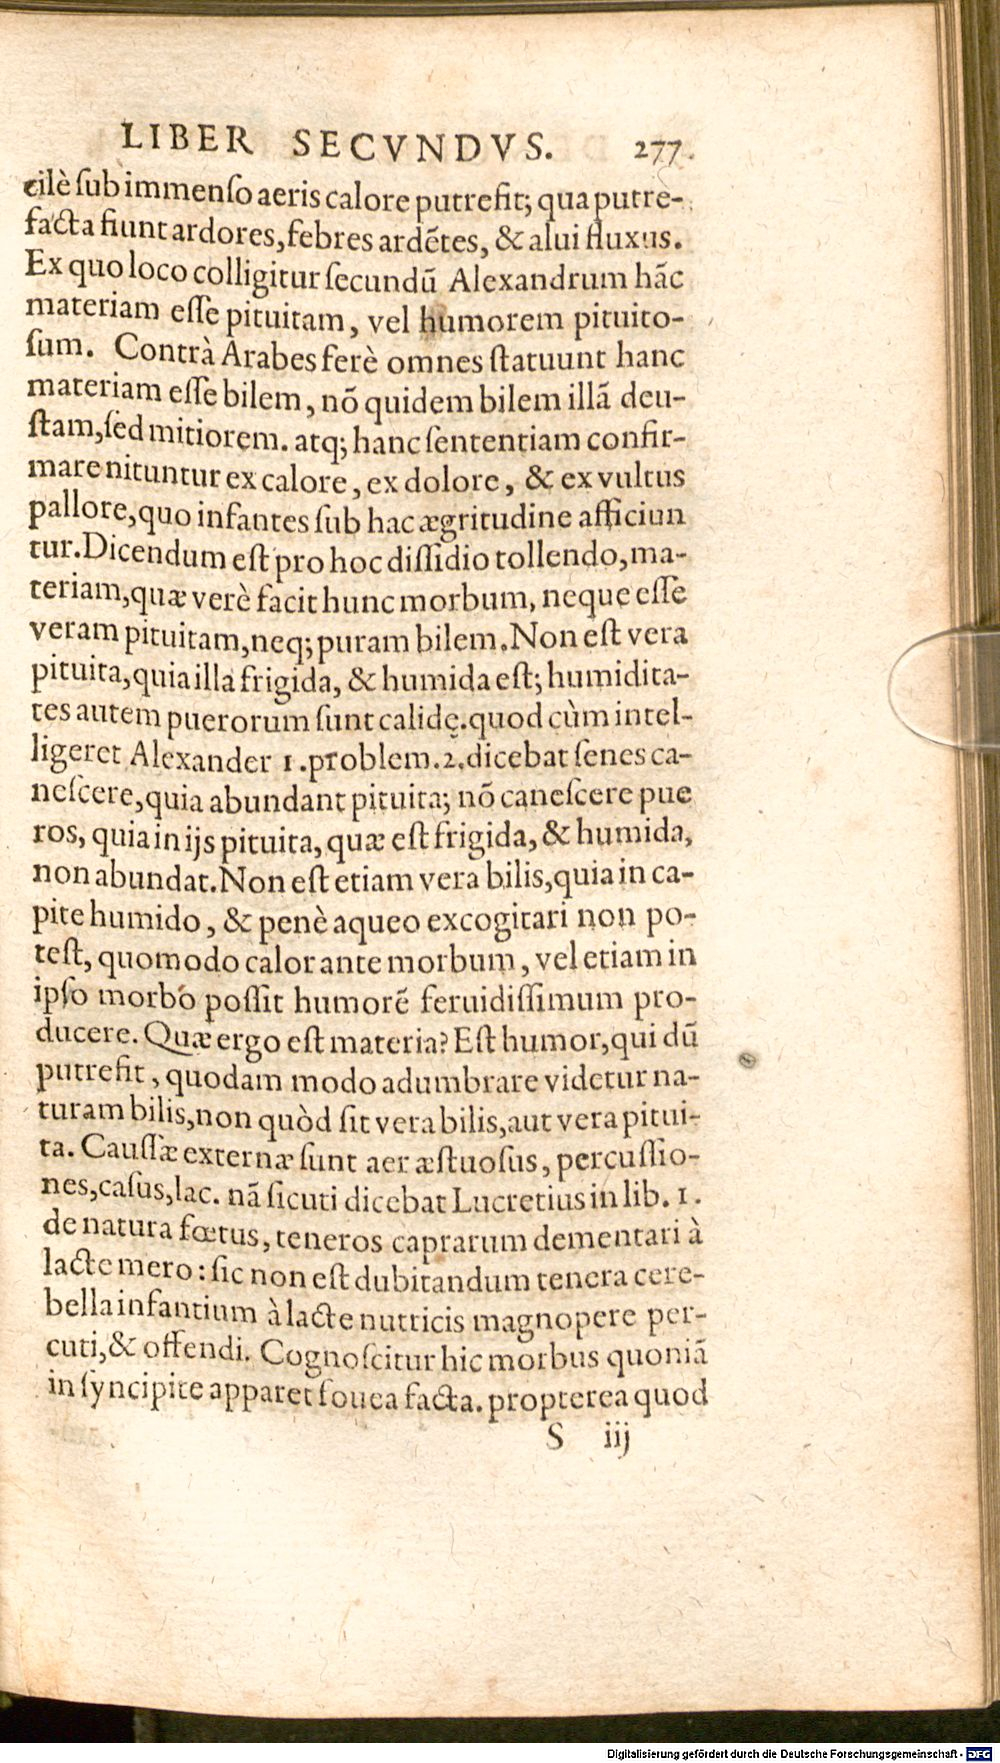 LIBER SECVNDVS. 277.
cilè sub immenso aeris calore putrefit; qua putre-
facta fiunt ardores, febres ardẽtes, & alui fluxus.
Ex quo loco colligitur secundũ Alexandrum hãc
materiam esse pituitam, vel humorem pituito-
sum. Contrà Arabes ferè omnes statuunt hanc
materiam esse bilem, nõ quidem bilem illã deu-
stam, sed mitiorem. atq; hanc sententiam confir-
mare nituntur ex calore, ex dolore, & ex vultus
pallore, quo infantes sub hac ægritudine afficiun
tur. Dicendum est pro hoc dissidio tollendo, ma-
teriam, quæ verè facit hunc morbum, neque esse
veram pituitam, neq; puram bilem. Non est vera
pituita, quia illa frigida, & humida est; humidita-
tes autem puerorum sunt calidę. quod cùm intel-
ligeret Alexander 1. problem. 2. dicebat senes ca-
nescere, quia abundant pituita; nõ canescere pue
ros, quia in ijs pituita, quæ est frigida, & humida,
non abundat. Non est etiam vera bilis, quia in ca-
pite humido, & penè aqueo excogitari non po-
test, quomodo calor ante morbum, vel etiam in
ipso morbo possit humorẽ feruidissimum pro-
ducere. Quæ ergo est materia? Est humor, qui dũ
putrefit, quodam modo adumbrare videtur na-
turam bilis, non quòd sit vera bilis, aut vera pitui-
ta. Caussæ externæ sunt aer æstuosus, percussio-
nes, casus, lac. nã sicuti dicebat Lucretius in lib. 1.
de natura fœtus, teneros caprarum dementari à
lacte mero: sic non est dubitandum tenera cere-
bella infantium à lacte nutricis magnopere per-
cuti, & offendi. Cognoscitur hic morbus quoniã
in syncipite apparet fouea facta. propterea quod
S iij
Digitalisierung gefördert durch die Deutsche Forschungsgemeinschaft - DFG